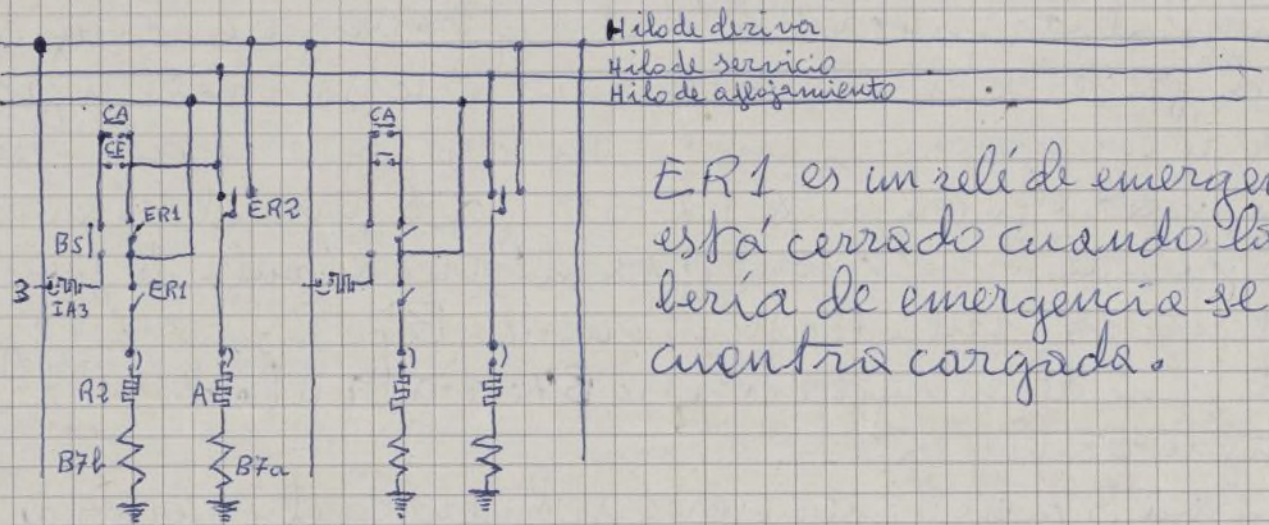 Hilo de deriva
Hilo de servicio
Hilo de aflojamiento
CA
CE
ER1
ER2
BS1
3
IA3
ER1
R2
A
B7b
B7a
CA
ER1 es un relé de emergen
está cerrado cuando la
bería de emergencia se
cuentra cargada.